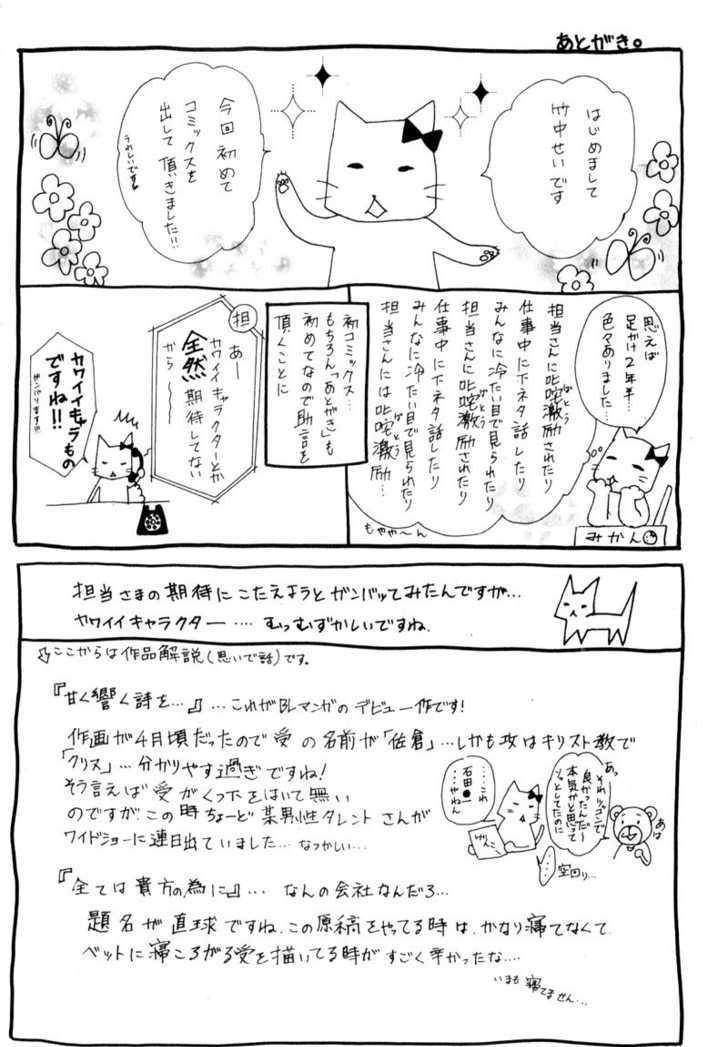 あとがき。
はじめまして
竹中せいです
今回初めて
コミックスを
出して頂きました!!
うれしいです
思えば
足がけ2年半…
色々ありました…
担当さんに叱咤激励されたり
仕事中に下ネタ話したり
みんなに冷たい目で見られたり
担当さんに叱咤激励されたり
仕事中に下ネタ話したり
みんなに冷たい目で見られたり
担当さんには叱咤激励…
もやや〜ん
みかん
初コミックス…
もちろん「あとがき」も
初めてなので助言を
頂くことに
担
あー
カワイイキャラクターとか
全然期待してない
から〜
カワイイキャラもの
ですね!!
ガンバります!!!
担当さまの期待にこたえようとガンバッてみたんですが…
カワイイキャラクター‥‥むっむずかしいですね.
ここからは作品解説(思いで話)です。
『甘く響く詩を…』…これがBLマンガのデビュー作です!
作画が4月頃だったので受の名前が「佐倉」…しかも攻はキリスト教で
「クリス」…分かりやす過ぎですね!
そう言えば受がくつ下をはいて無い
のですが、この時ちょーど某男性タレントさんが
ワイドショーに連日出ていました…なつかしい…
…これ
石田●一
…やねん
げんこ
あっ
それリップンで
良かったんだ〜
本気かと思って
そっとしてたのに
あは
…空回り…
『全ては貴方の為に』…なんの会社なんだろ…
題名が直球ですね.この原稿をやってる時は、かなり寝てなくて
ベットに寝ころがる受を描いてる時がすごく辛かったな…
いまも寝てません…